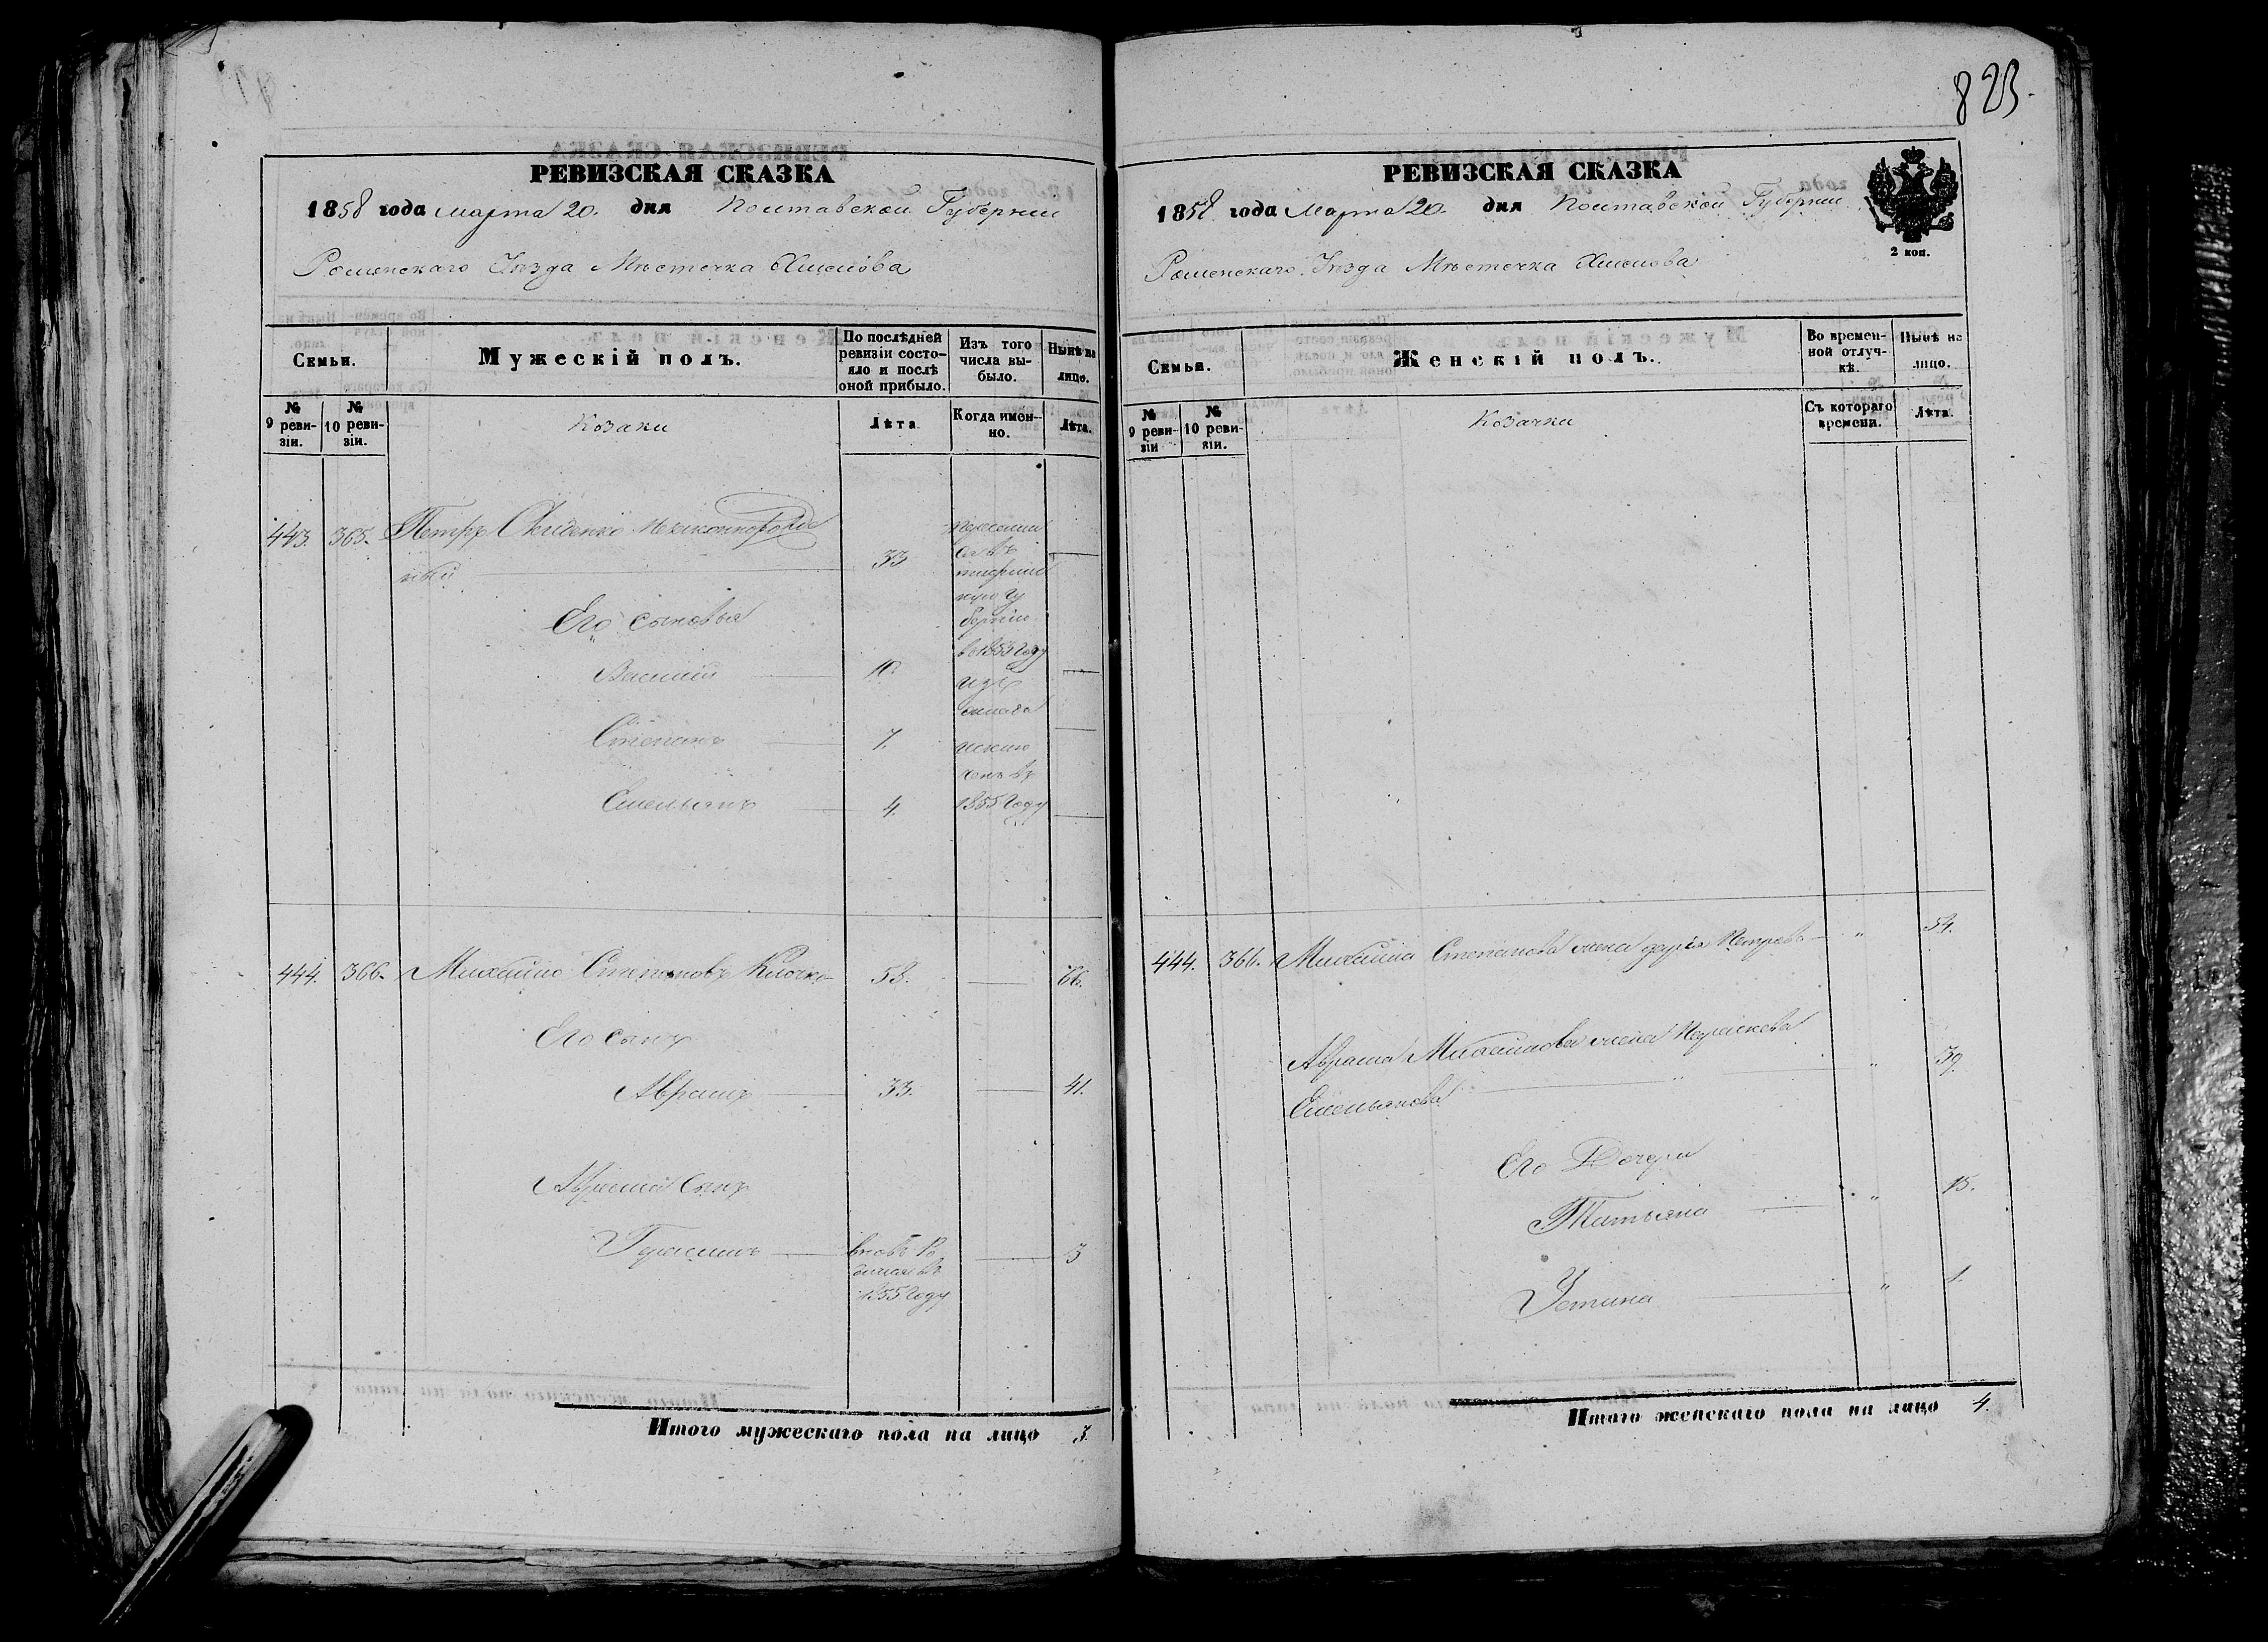 823
РЕВИЗСКАЯ СКАЗКА
1858 года марта 20. дня Полтавской Губернии
Роменскаго Уѣзда Мѣстечка Хмелова
Семьи.
Мужескій полъ.
По послѣдней ревизіи состояло и послѣ оной прибыло.
Изъ того числа выбыло.
Нынѣ на лицо.
№ 9 ревизіи.
№ 10 ревизіи.
Козаки
Лѣта.
Когда именно.
Лѣта.
443. 365. Петръ 33
ный
Его сыновья
Василий 10.
Степанъ 7.
Емельянъ 4.
губернію
в 1853 году
изъ
оклада
исклю
ченъ въ
1855 году
444. 366. Михайло Степановъ Клочко 58. 66.
Его сынъ
Аврамъ 33. 41.
Аврама Сынъ
Герасимъ вновь ро 3
дился въ
1855 году
Итого мужескаго пола на лицо 3.
РЕВИЗСКАЯ СКАЗКА
1858 года Марта 20. дня Полтавской Губернии
Роменскаго Уѣзда Мѣстечка Хмелова
2 коп.
Семьи.
Женскій полъ.
Во временной отлучкѣ.
Нынѣ на лицо.
№ 9 ревизіи
№ 10 ревизіи.
Козачки
Съ котораго времени.
Лѣта.
444. 366. Михайла Степанова жена Дарія Петрова " 54.
Аврама Михайлова жена Параскева
Емельянова " " 39.
Его Дочери
Татьяна " 15.
Устина " 1.
Итого женскаго пола на лицо 4.